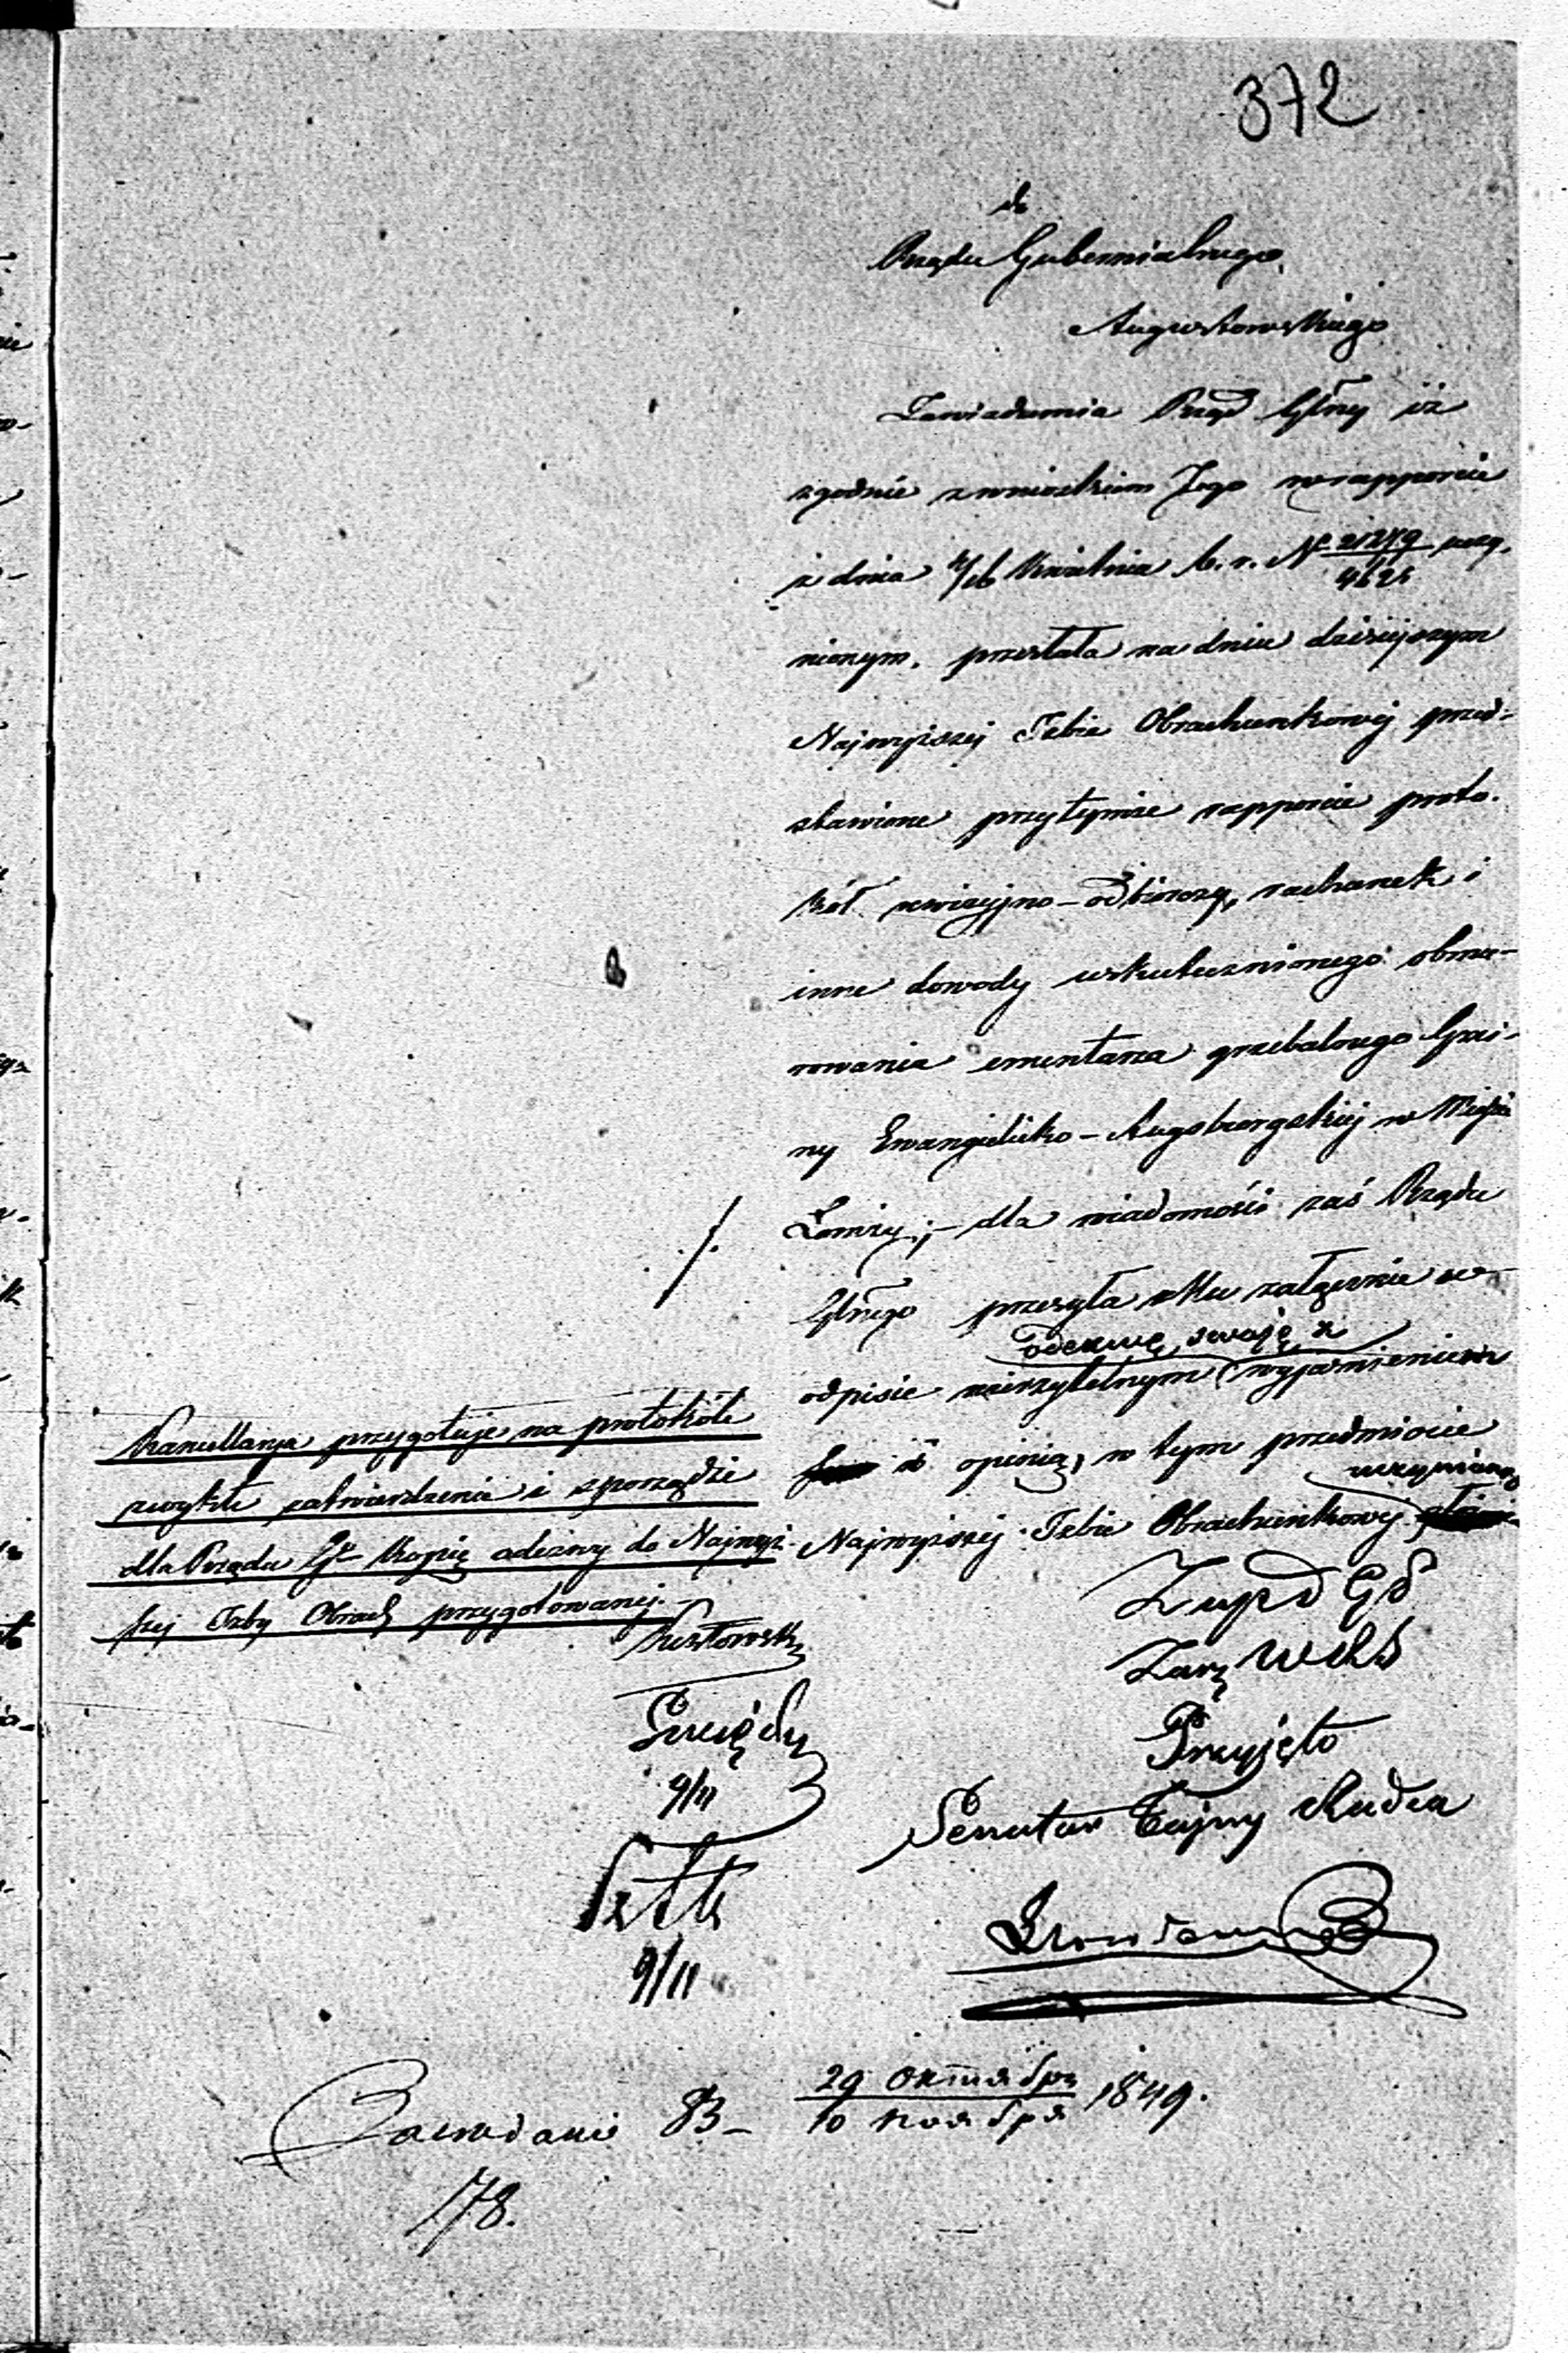 372
do
Rządu Gubernialnego
Augustowskiego
Zawiadamia Rząd Gbrny iż
zgodnie z wnioskiem Jego w rapporcie
z dnia Kwietnia b. r. N° uczy-
nionym, przesłała na dniu dzisiejszym
Najwyższej Izbie Obrachunkowej przed-
stawione przy tymże rapporcie proto-
kół rewizyjno-odbiorczy, rachunek i
inne dowody uskutecznionego obmu-
rowania cmentarza grzebalnego Gmi-
ny Ewangielicko-Augsburgskiej w Mieście
Łomży;- dla wiadomości zaś Rządu
Gbrnego przesyła Mu załącznie w
odezwę swoję z
odpisie wierzytelnym wyjaśnieniem
i opinią, w tym przedmiocie
uczynioną
Najwyższej Izbie Obrachunkowej
Kancellarja przygotuje na protokóle
zwykłe zatwierdzenia i sporządzi
dla Rządu Go kopię odezwy do Najwyż-
szej Izby Obrach przygotowanej.-
9/11
9/11
Przyjęto
Senator Tajny Radca
29 октября
10 ноября 1849.
178.